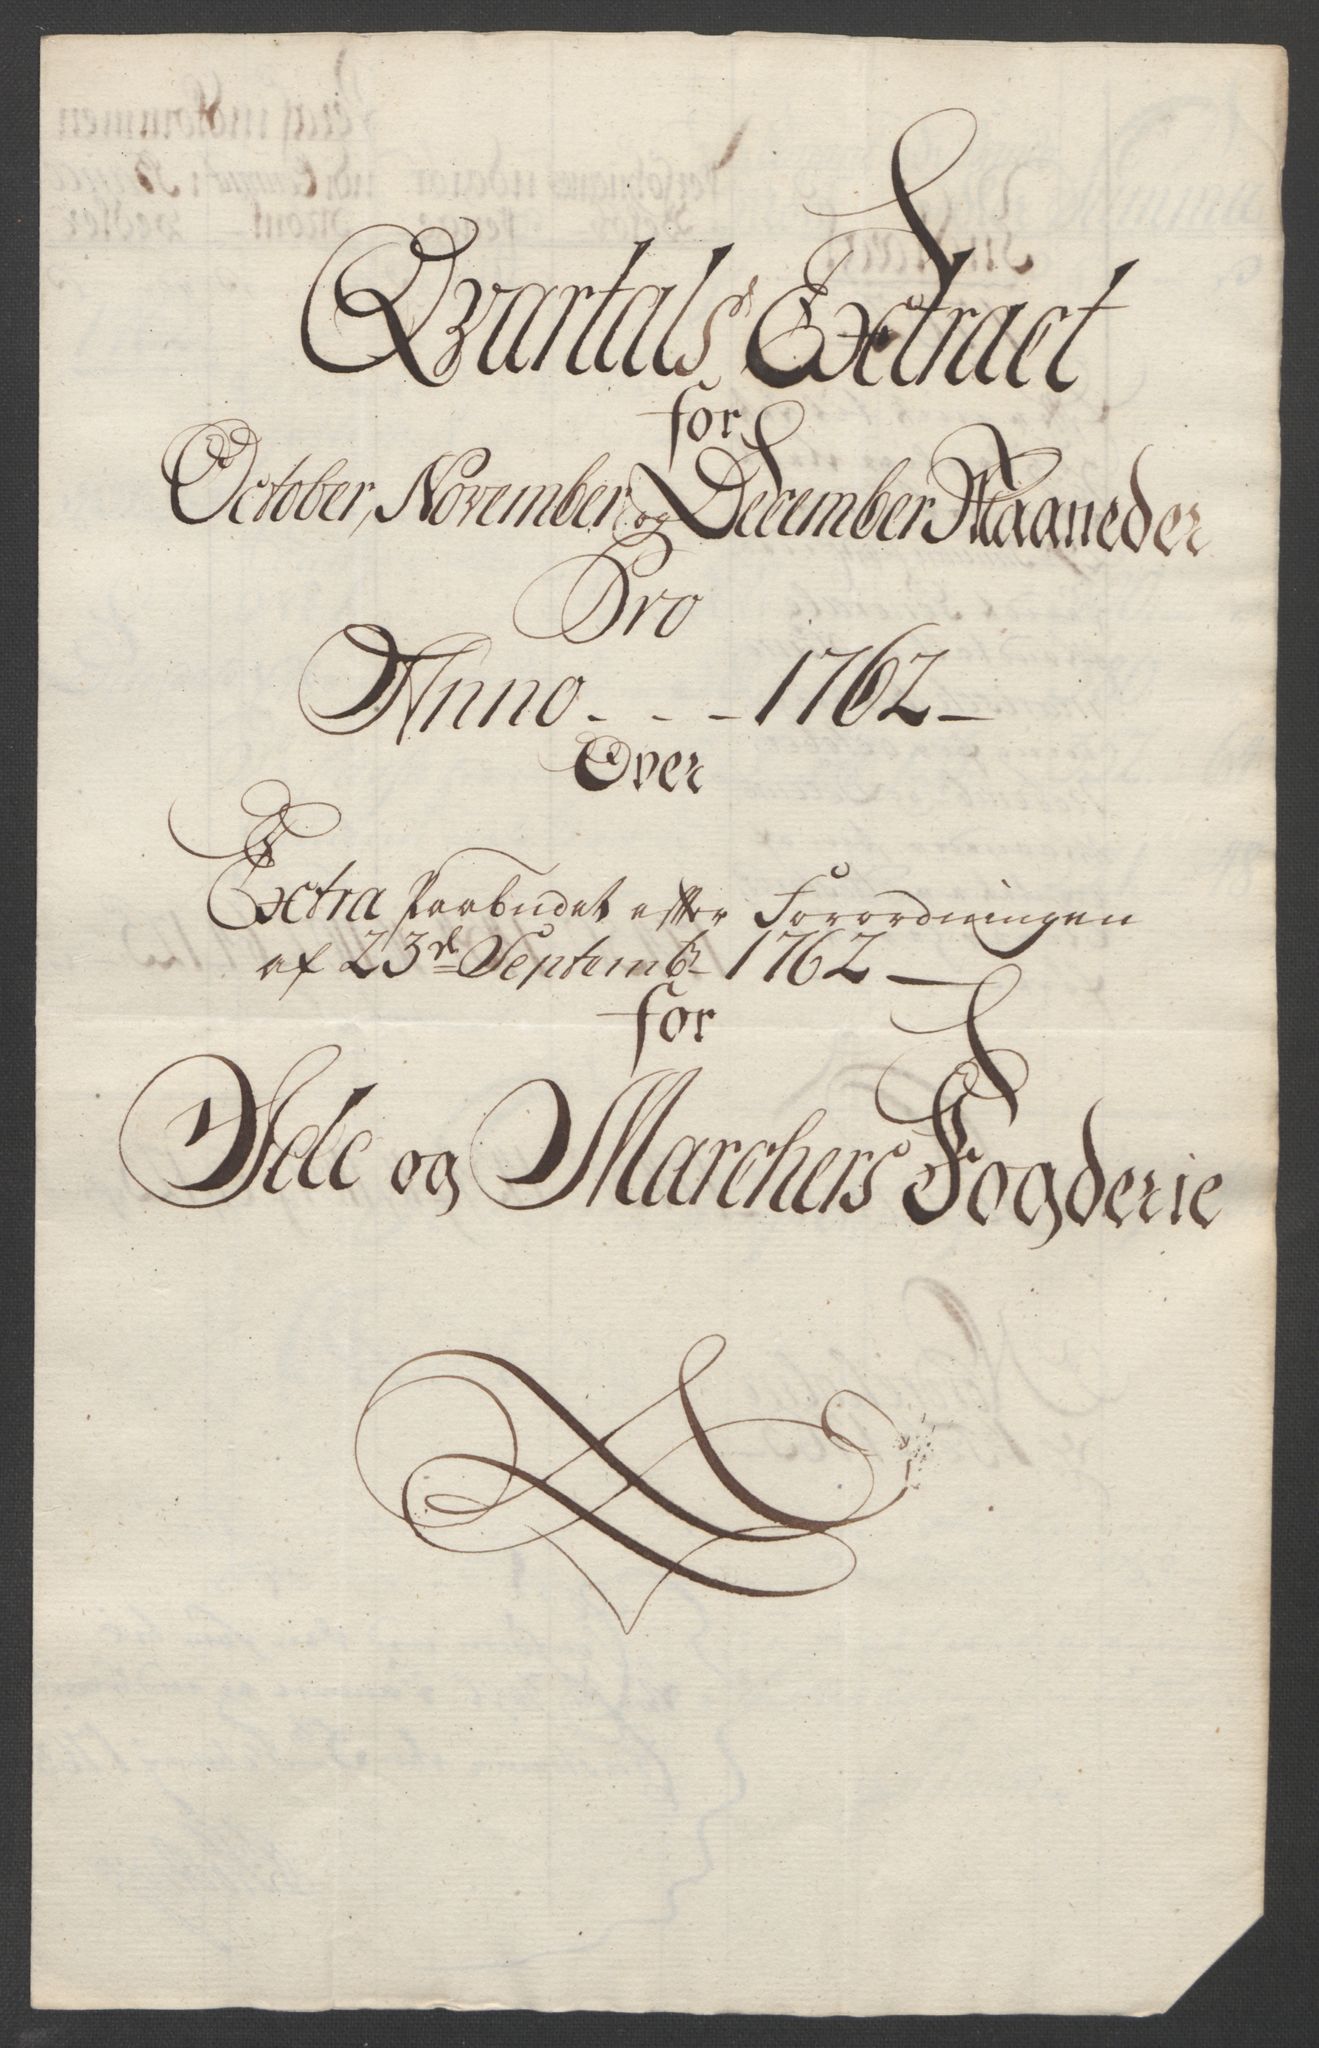 Qvartals Extract
for
October, November og December Maaneder
Pro
Anno - - - 1762 -
Over
Extra Paabudet efter Forordningen
af 23d Septembr 1762 -
for
Jdde og Marchers Fogderie